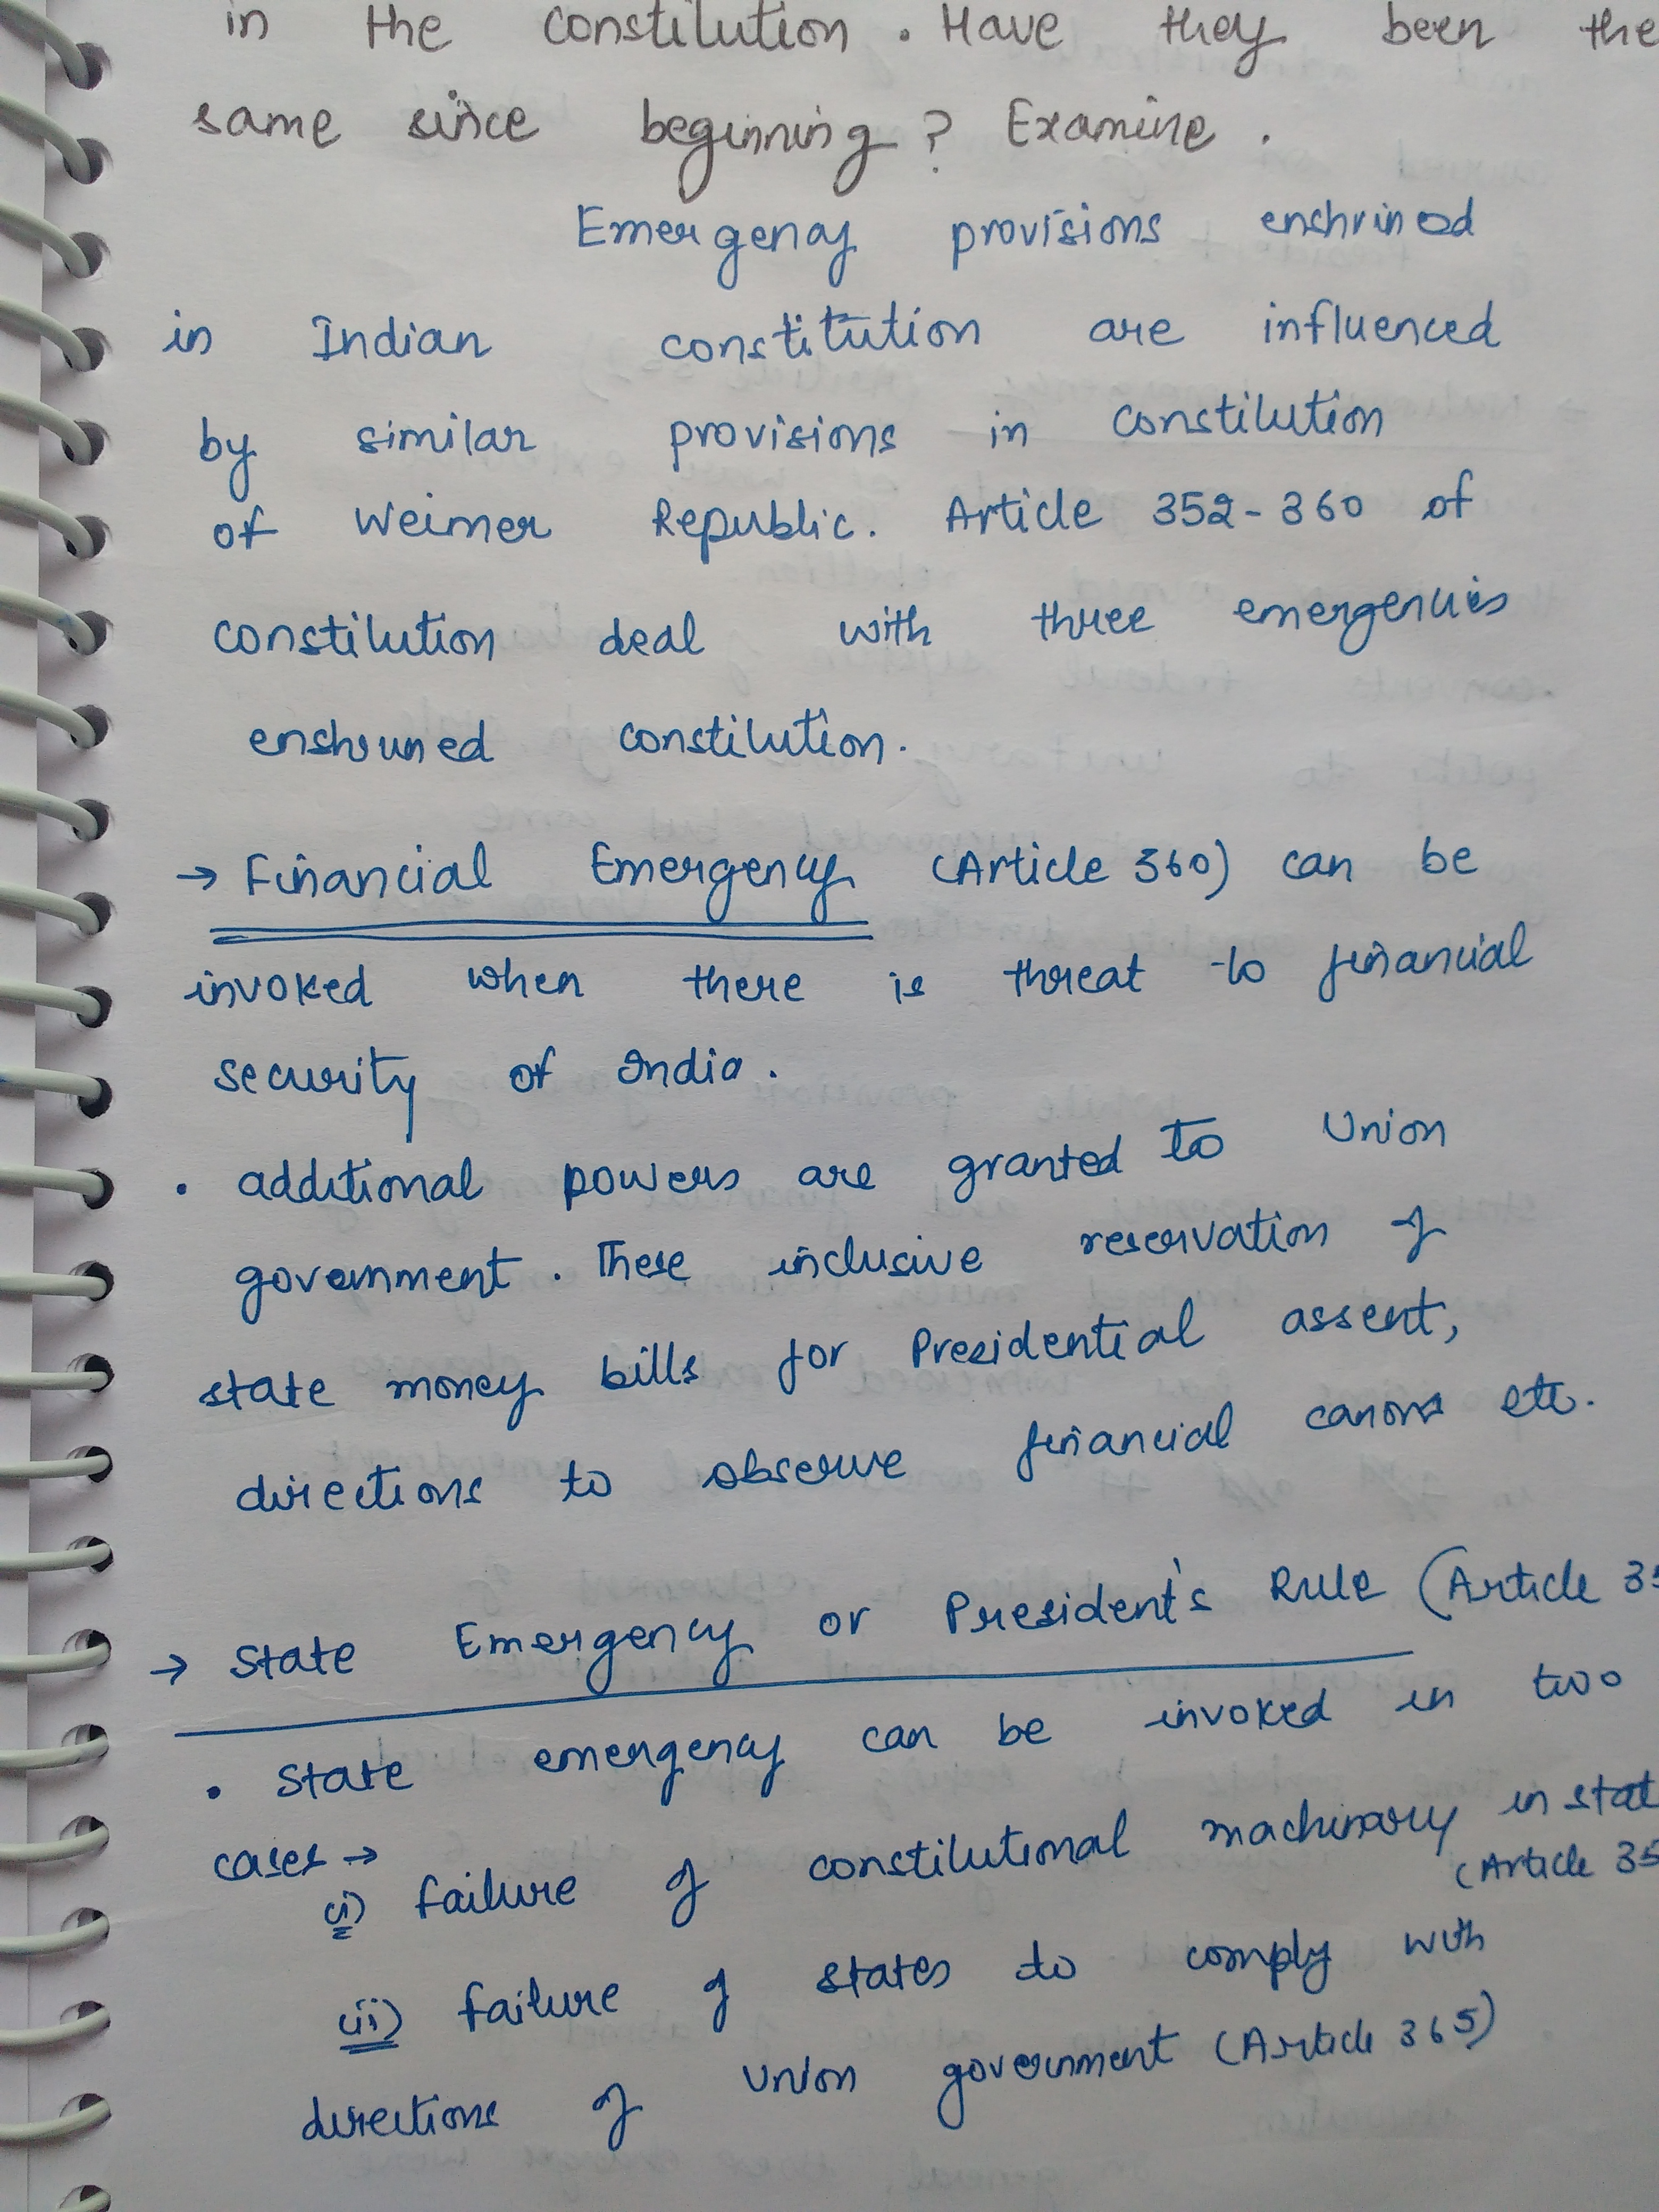 in the constitution. Have they been the
same since beginning? Examine.
Emergency provisions enshrined
in Indian constitution are influenced
by similar provisions in constitution
of Weimer Republic. Article 352-360 of
constitution deal with three emergencies
enshrined constitution.
→ Financial Emergency (Article 360) can be
invoked when there is threat to financial
security of India.
• additional powers are granted to Union
government. These inclusive reservation of
state money bills for Presidential assent,
directions to observe financial canons etc.
→ State Emergency or President's Rule (Article 35
• State emergency can be invoked in two
cases →
(i) failure of constitutional machinary in stat
(Article 35
(ii) failure of states to comply with
directions of Union government (Article 365)